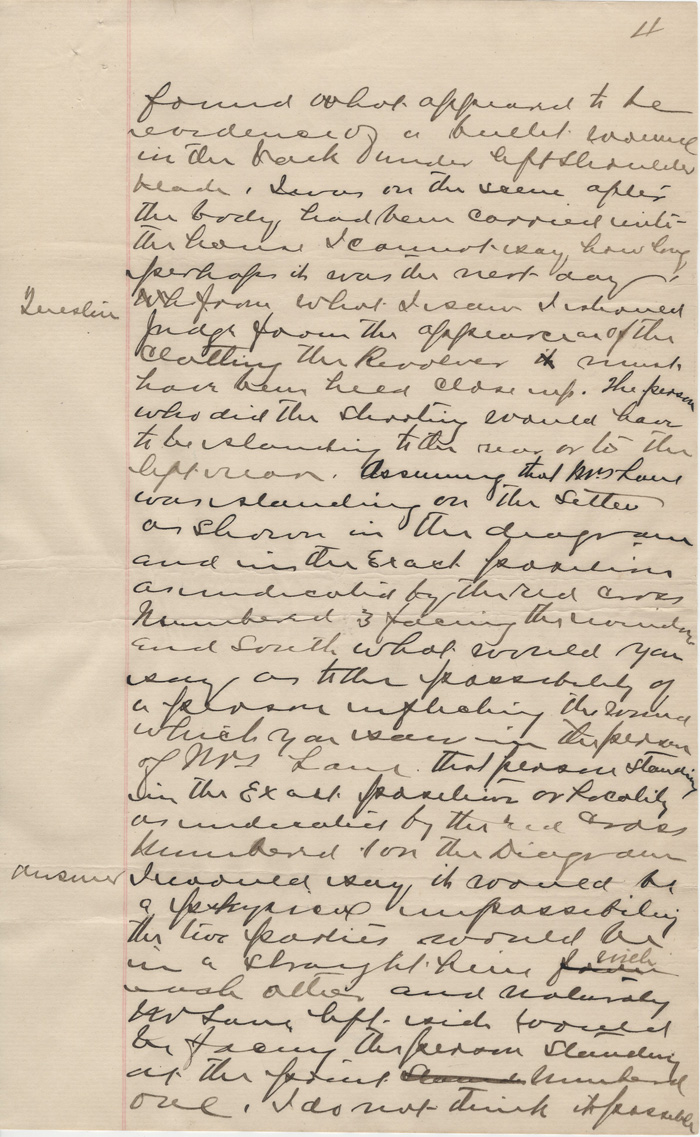 4
found what appeared to be
evidence of a bullet wound
in the back under left shoulder
blade. I was on the scene after
the body had been carried into
the house I cannot say how long
perhaps it was the next day.
Question
from what I saw I should
judge from the appearance of the
clothing the Revolver it must
have been held close up. The person
who did the shooting would have
to be standing to the rear or to the
left rear. Assuming that Mrs Lane
was standing on the Settee
as shown in the diagram
and in the Exact position
as indicated by the red cross
Numbered 3 facing the window
and South what would you
say as to the possibility of
a person inflicting the wound
which you saw in the person
of Mrs Lane that person standing
in the Exact position or locality
as indicated by the red Cross
Numbered 1 on the Diagram
Answer
I would say it would be
a physical impossibility
the two parties would be
in a straight line with
each other and naturally
Mrs Lane left side would
be facing the person standing
at the point Numbered
one. I do not think it possible